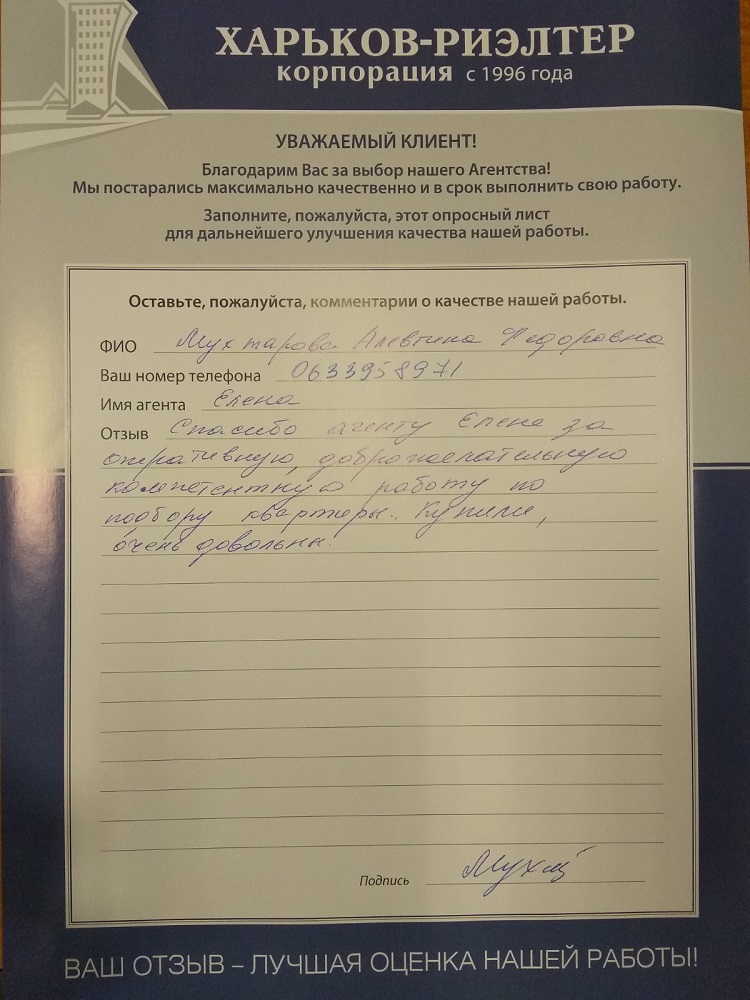 ХАРЬКОВ-РИЭЛТЕР
корпорация с 1996 года
УВАЖАЕМЫЙ КЛИЕНТ!
Благодарим Вас за выбор нашего Агентства!
Мы постарались максимально качественно и в срок выполнить свою работу.
Заполните, пожалуйста, этот опросный лист
для дальнейшего улучшения качества нашей работы.
Оставьте, пожалуйста, комментарии о качестве нашей работы.
ФИО Мухтарова Алевтина Федоровна
Ваш номер телефона 0633958971
Имя агента Елена
Отзыв Спасибо агенту Елене за
оперативную, доброжелательную
компетентную работу по
подбору квартиры. Купили,
очень довольны.
Подпись
ВАШ ОТЗЫВ – ЛУЧШАЯ ОЦЕНКА НАШЕЙ РАБОТЫ!